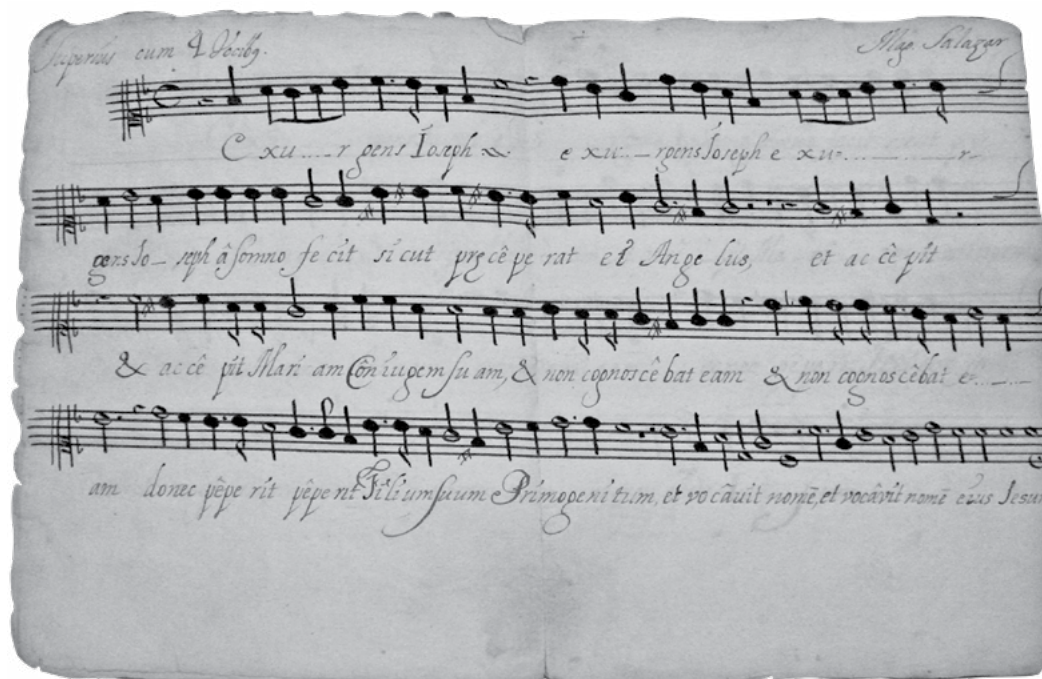 Superius cum 4 vocibq. Mag. Salazar
Exu....r gens Ioseph & e xu....rgens Ioseph e xu-...........r-
gens Io_ seph â somno fe cit si cut pręcê pe rat et Ange lus, et ac cê pit
& ac cê pit Mari am Con iugem su am, & non cognoscê bat eam & non cognoscêbat e-......
am donec pêpe rit pêpe rit Filium suum Primogeni tum, et vo cāuit nomē, et vocâvit nomē eius Iesum